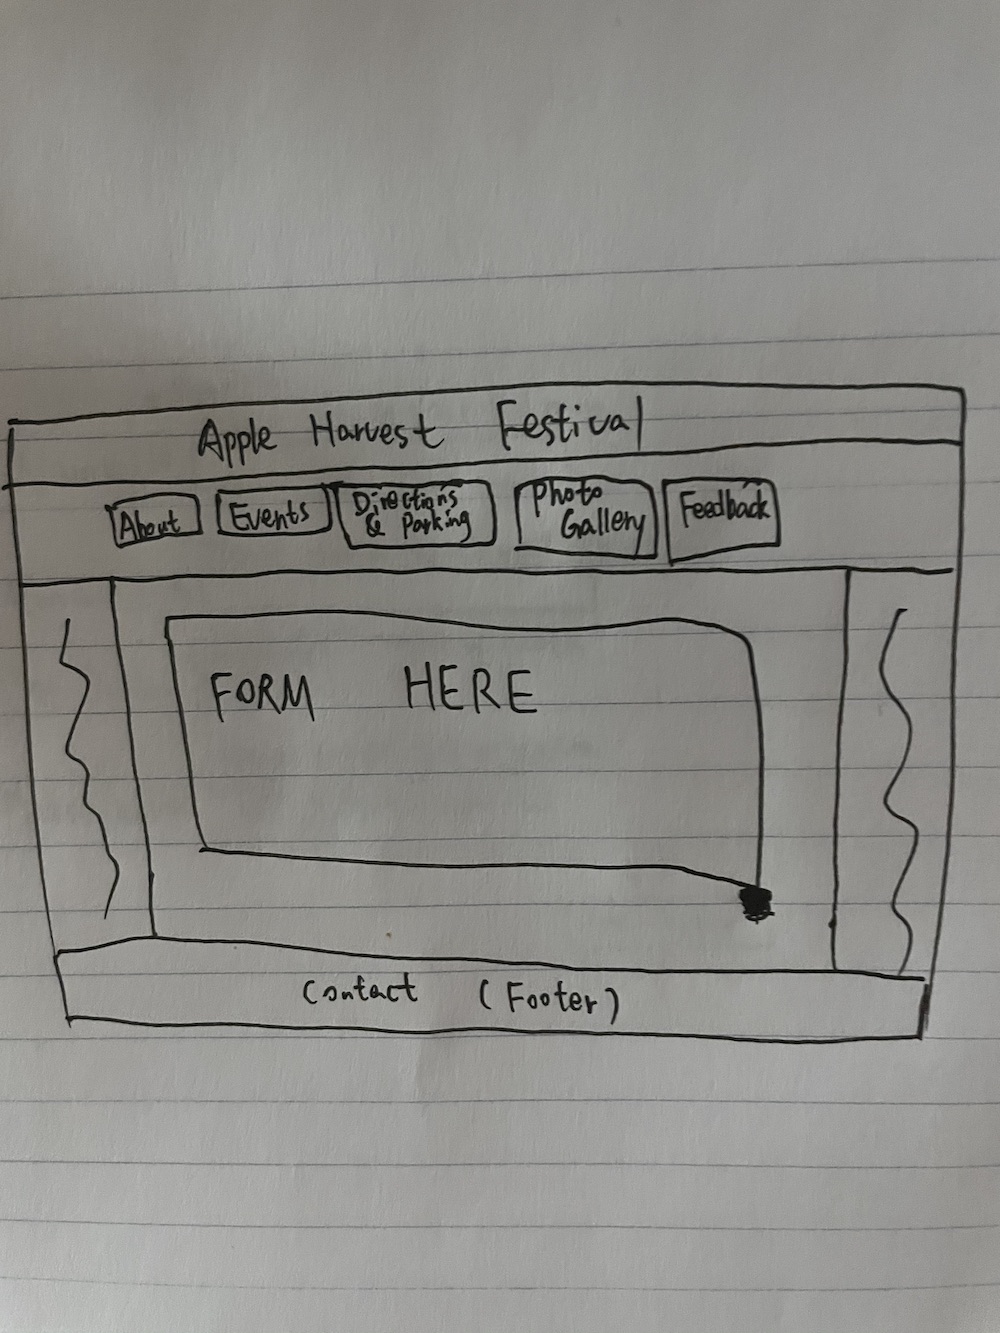 Apple Harvest Festival
About
Events
Directions
& Parking
Photo
Gallery
Feedback
FORM HERE
Contact (Footer)